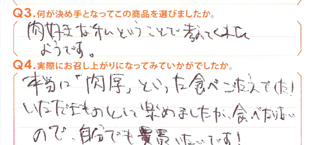 Q3.何が決め手となってこの商品を選びましたか。
肉好きな私ということで考えてくれた
ようです。
Q4.実際にお召し上がりになってみていかがでしたか。
本当に「肉厚」といった食べごたえでした!
いただきものとして楽しめましたが、食べたりない
ので、自分でも買いたいです!